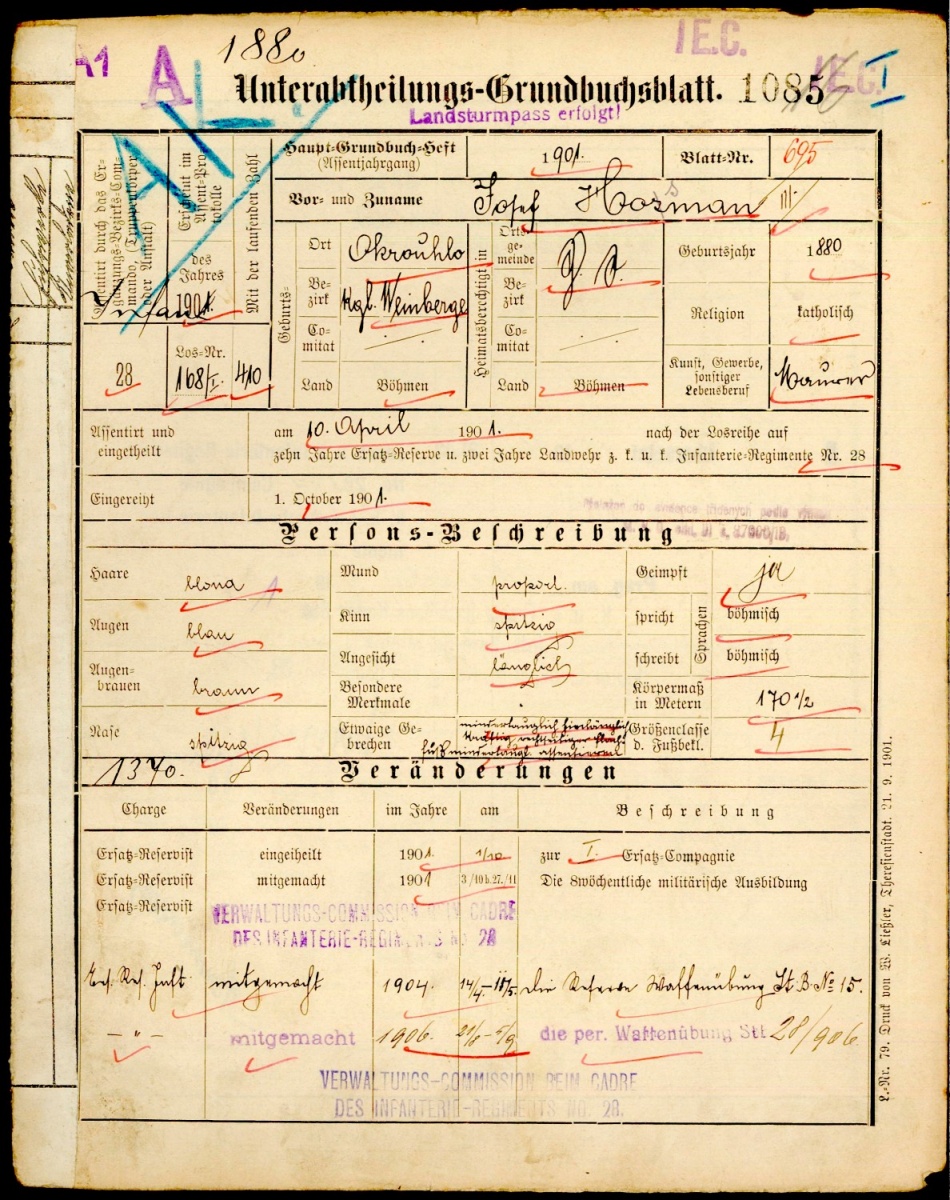 A1
A
1880
I E.C.
I.E.C. I
Unterabtheilungs-Grundbuchsblatt. 1085
Landsturmpass erfolgt!
Assentirt durch das Ergänzungs-Bezirks-Commando, (Truppenkörper oder Anstalt)
28
Erscheint im Assent-Protokolle
des Jahres
1901
Los-Nr.
168/I.
Mit der laufenden Zahl
410
Haupt-Grundbuch-Heft
(Assentjahrgang)
1901.
Blatt-Nr.
695
Vor- und Zuname
Josef Hozman
Geburts-
Ort
Okrouhlo
Bezirk
Kgl. Weinberge
Comitat
Land
Böhmen
Heimatsberechtigt in
Ortsgemeinde
Bezirk
Comitat
Land
Böhmen
Geburtsjahr
1880
Religion
katholisch
Kunst, Gewerbe,
sonstiger
Lebensberuf
Maurer
Assentirt und
eingetheilt
am 10. April 1901. nach der Losreihe auf
zehn Jahre Ersatz-Reserve u. zwei Jahre Landwehr z. k. u. k. Infanterie-Regimente Nr. 28
Eingereiht
1. October 1901.
Persons-Beschreibung
Haare
blond
Augen
blau
Augen-
brauen
braun
Nase
spitzig
Mund
proport.
Kinn
spitzig
Angesicht
länglich
Besondere
Merkmale
Etwaige Ge-
brechen
Geimpft
ja
spricht
Sprachen
böhmisch
schreibt
böhmisch
Körpermaß
in Metern
170 1/2
Größenclasse
d. Fußbekl.
4
1370.
Veränderungen
Charge Veränderungen im Jahre am Beschreibung
Ersatz-Reservist eingetheilt 1901. 1/10 zur I. Ersatz-Compagnie
Ersatz-Reservist mitgemacht 1901 3/10 b. 27./11 Die 8wöchentliche militärische Ausbildung
Ersatz-Reservist
VERWALTUNGS-COMMISSION BEIM CADRE
DES INFANTERIE-REGIMENTS No 28
Ers. Res. Inft. mitgemacht 1904. die Reserve Waffenübung St. B. No 15.
— " — mitgemacht 1906. die per. Waffenübung Stt 28/906.
VERWALTUNGS-COMMISSION BEIM CADRE
DES INFANTERIE-REGIMENTS No. 28.
L.-Nr. 79. Druck von W. Ließler, Theresienstadt. 21. 9. 1901.